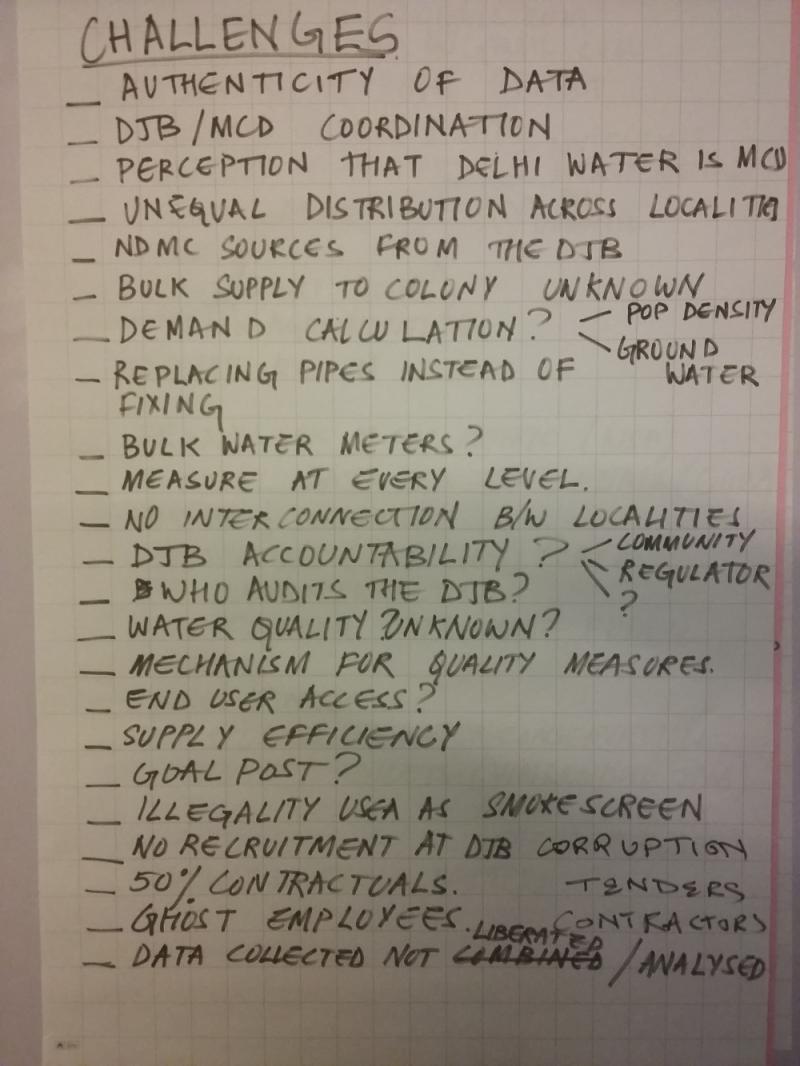 CHALLENGES
_ AUTHENTICITY OF DATA
_ DJB/MCD COORDINATION
_ PERCEPTION THAT DELHI WATER IS MCD
_ UNEQUAL DISTRIBUTION ACROSS LOCALITIES
_ NDMC SOURCES FROM THE DJB
_ BULK SUPPLY TO COLONY UNKNOWN
_ DEMAND CALCULATION? POP DENSITY
GROUND WATER
_ REPLACING PIPES INSTEAD OF
FIXING
_ BULK WATER METERS?
_ MEASURE AT EVERY LEVEL.
_ NO INTERCONNECTION B/W LOCALITIES
_ DJB ACCOUNTABILITY? COMMUNITY
REGULATOR
?
_ WHO AUDITS THE DJB?
_ WATER QUALITY UNKNOWN?
_ MECHANISM FOR QUALITY MEASURES.
_ END USER ACCESS?
_ SUPPLY EFFICIENCY
_ GOAL POST?
_ ILLEGALITY USED AS SMOKESCREEN
_ NO RECRUITMENT AT DJB CORRUPTION
_ 50% CONTRACTUALS. TENDERS
_ GHOST EMPLOYEES. CONTRACTORS
LIBERATED
_ DATA COLLECTED NOT COMBINED / ANALYSED